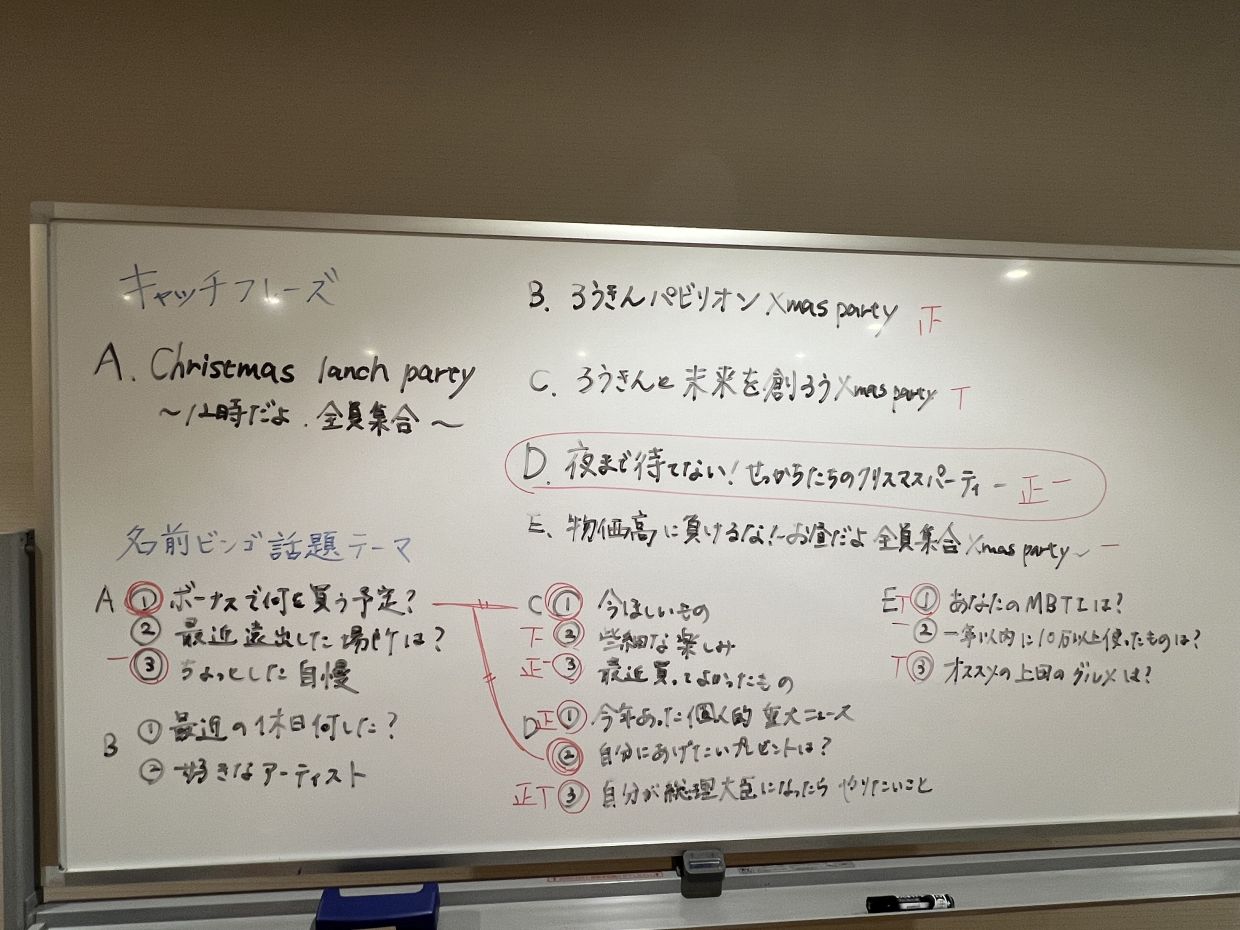 キャッチフレーズ
A. Christmas lanch party
〜12時だよ.全員集合〜
B. ろうきんパビリオン Xmas party 正
C. ろうきんと未来を創ろう Xmas party T
D. 夜まで待てない!せっかちたちのクリスマスパーティー 正一
E. 物価高に負けるな!〜お昼だよ全員集合 Xmas party〜 一
名前ビンゴ話題テーマ
A ① ボーナスで何を買う予定?
② 最近遠出した場所は?
一 ③ ちょっとした自慢
B ① 最近の休日何した?
② 好きなアーティスト
C ① 今ほしいもの
下 ② 些細な楽しみ
正一 ③ 最近買ってよかったもの
D 正 ① 今年あった個人的重大ニュース
② 自分にあげたいプレゼントは?
正T ③ 自分が総理大臣になったらやりたいこと
E T ① あなたのMBTIは?
一 ② 一年以内に10万以上使ったものは?
T ③ オススメの上田のグルメは?